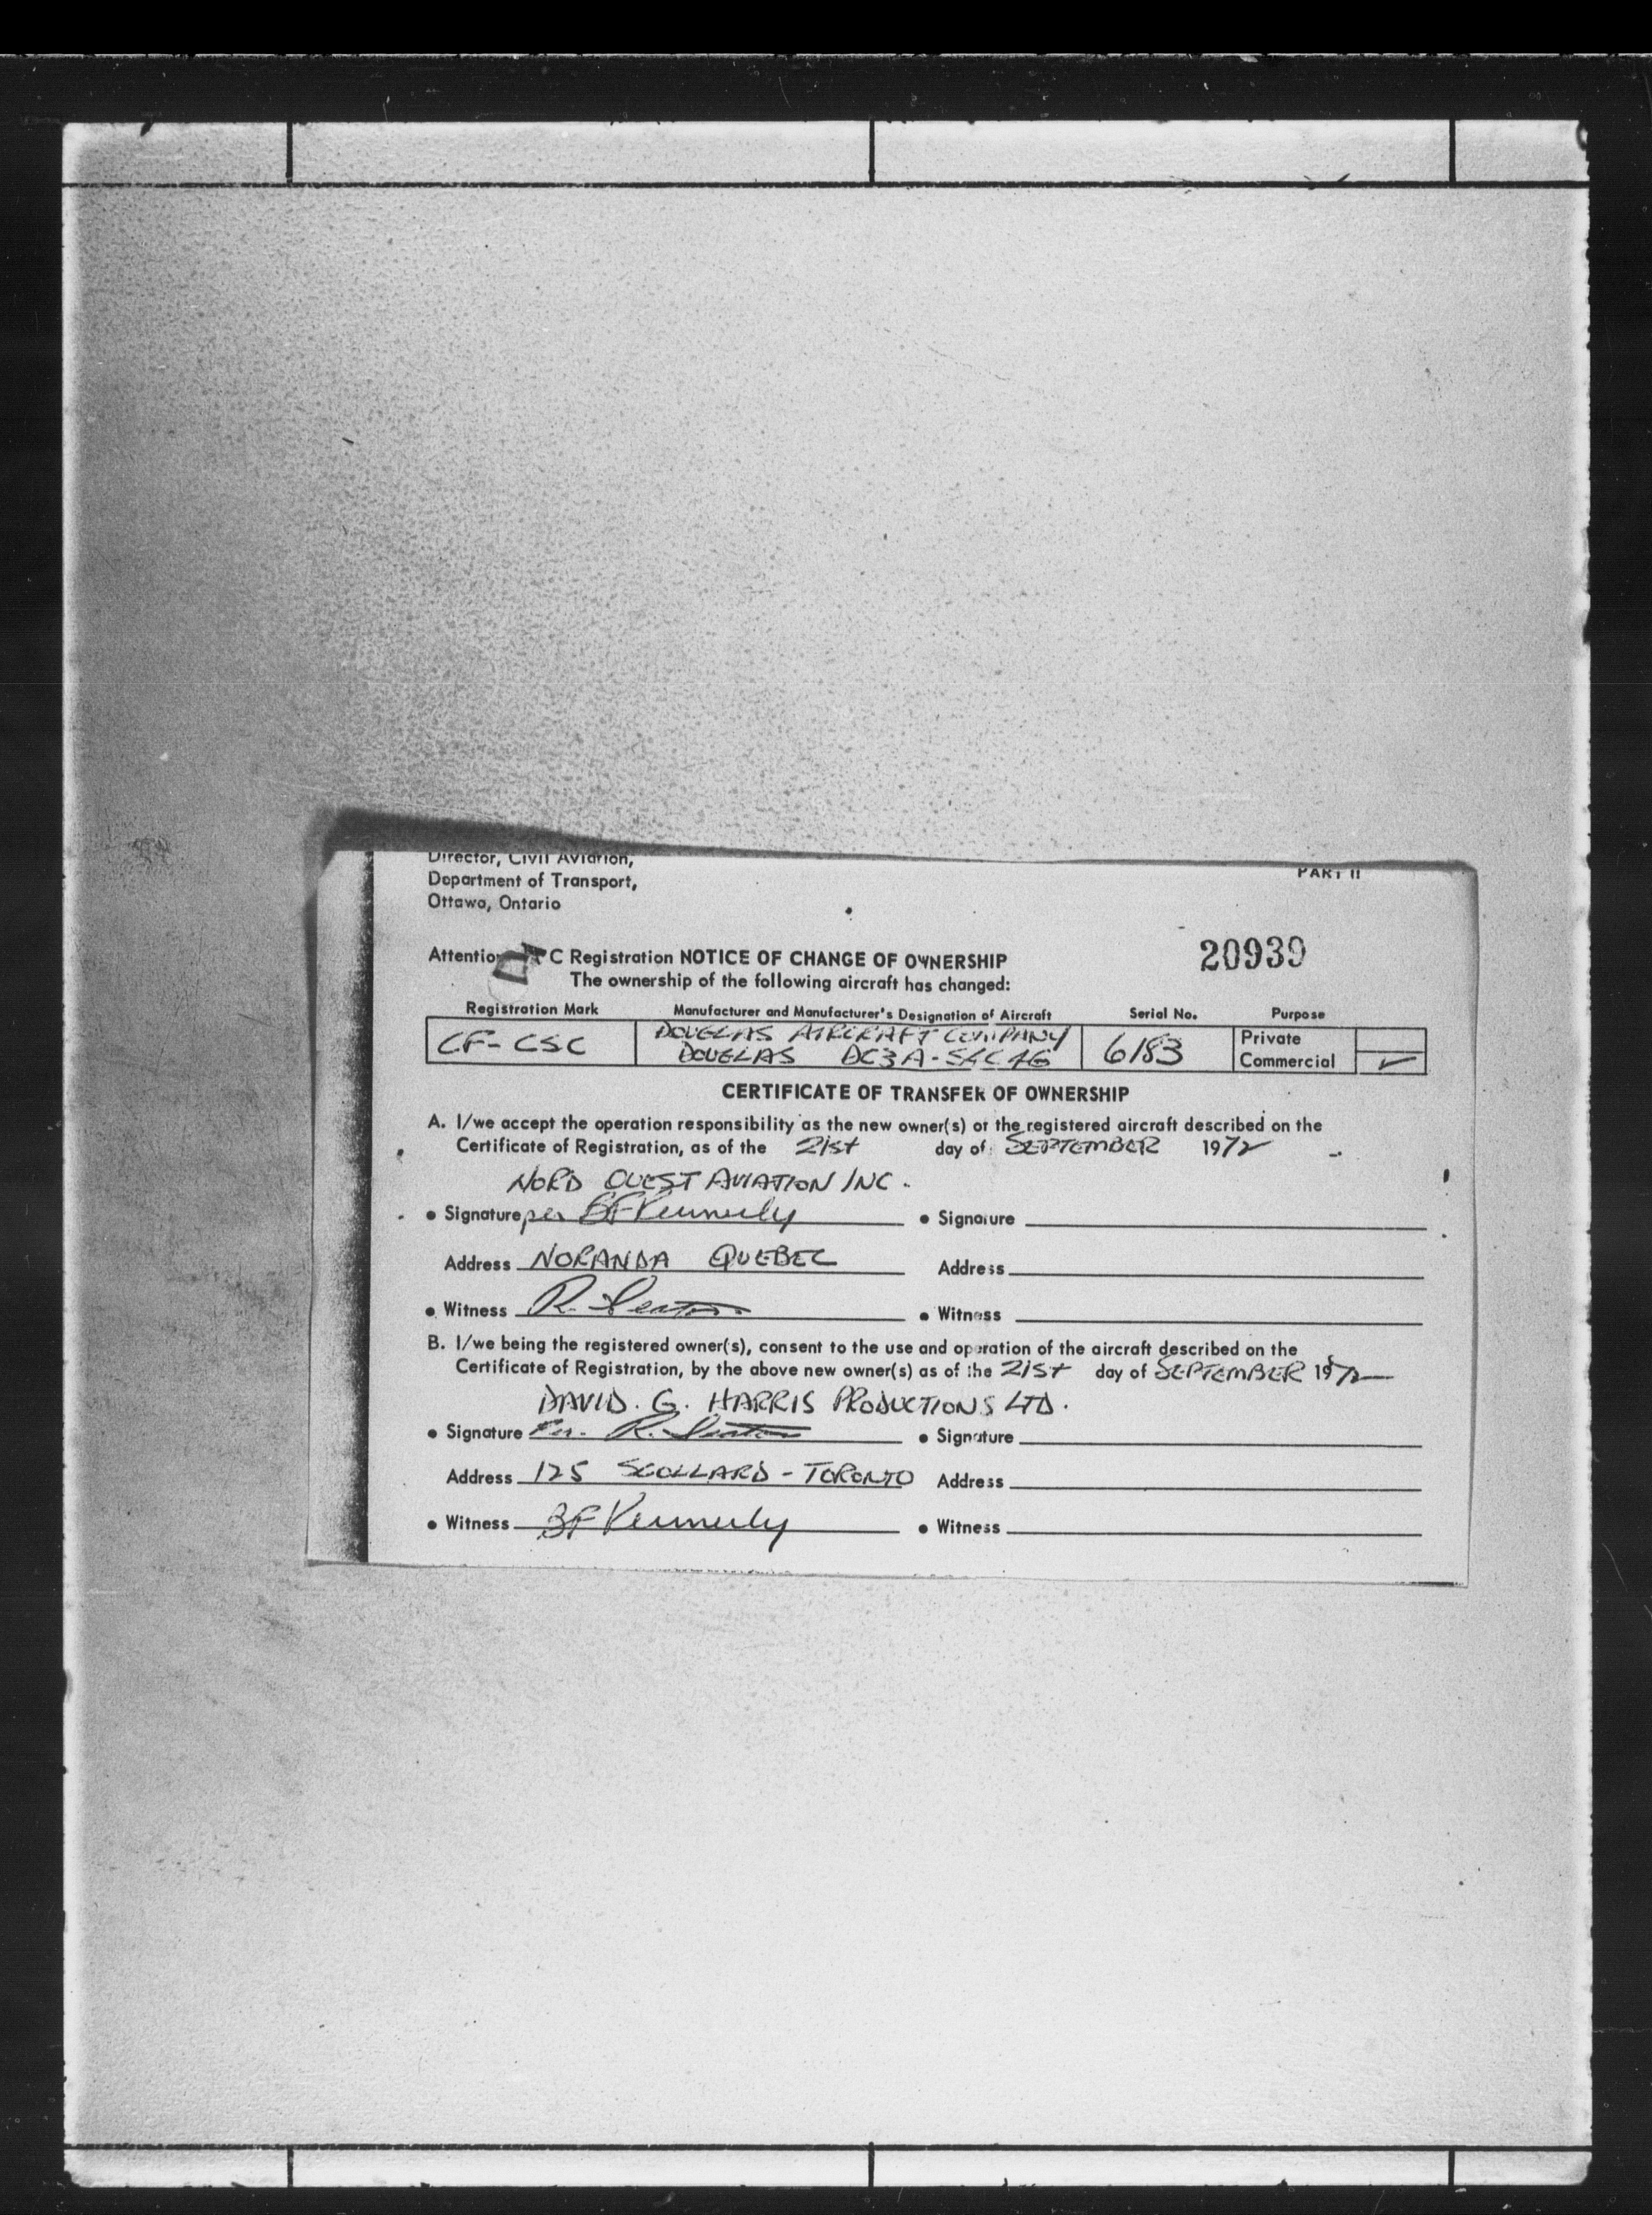 Director, Civil Aviation,
PART II
Department of Transport,
Ottawa, Ontario
20939
Attention C Registration NOTICE OF CHANGE OF OWNERSHIP
The ownership of the following aircraft has changed:
Registration Mark Manufacturer and Manufacturer's Designation of Aircraft Serial No. Purpose
CF-CSC DOUGLAS AIRCRAFT COMPANY 6183 Private
DOUGLAS DC3A- Commercial ✓
CERTIFICATE OF TRANSFER OF OWNERSHIP
A. I/we accept the operation responsibility as the new owner(s) of the registered aircraft described on the
Certificate of Registration, as of the 21st day of SEPTEMBER 1972
NORD OUEST AVIATION INC.
• Signature per BF Kennerly • Signature
Address NORANDA QUEBEC Address
• Witness R. • Witness
B. I/we being the registered owner(s), consent to the use and operation of the aircraft described on the
Certificate of Registration, by the above new owner(s) as of the 21st day of SEPTEMBER 1972
DAVID. G. HARRIS PRODUCTIONS LTD.
• Signature Per. R. • Signature
Address 125 SCOLLARD - TORONTO Address
• Witness BF Kennerly • Witness